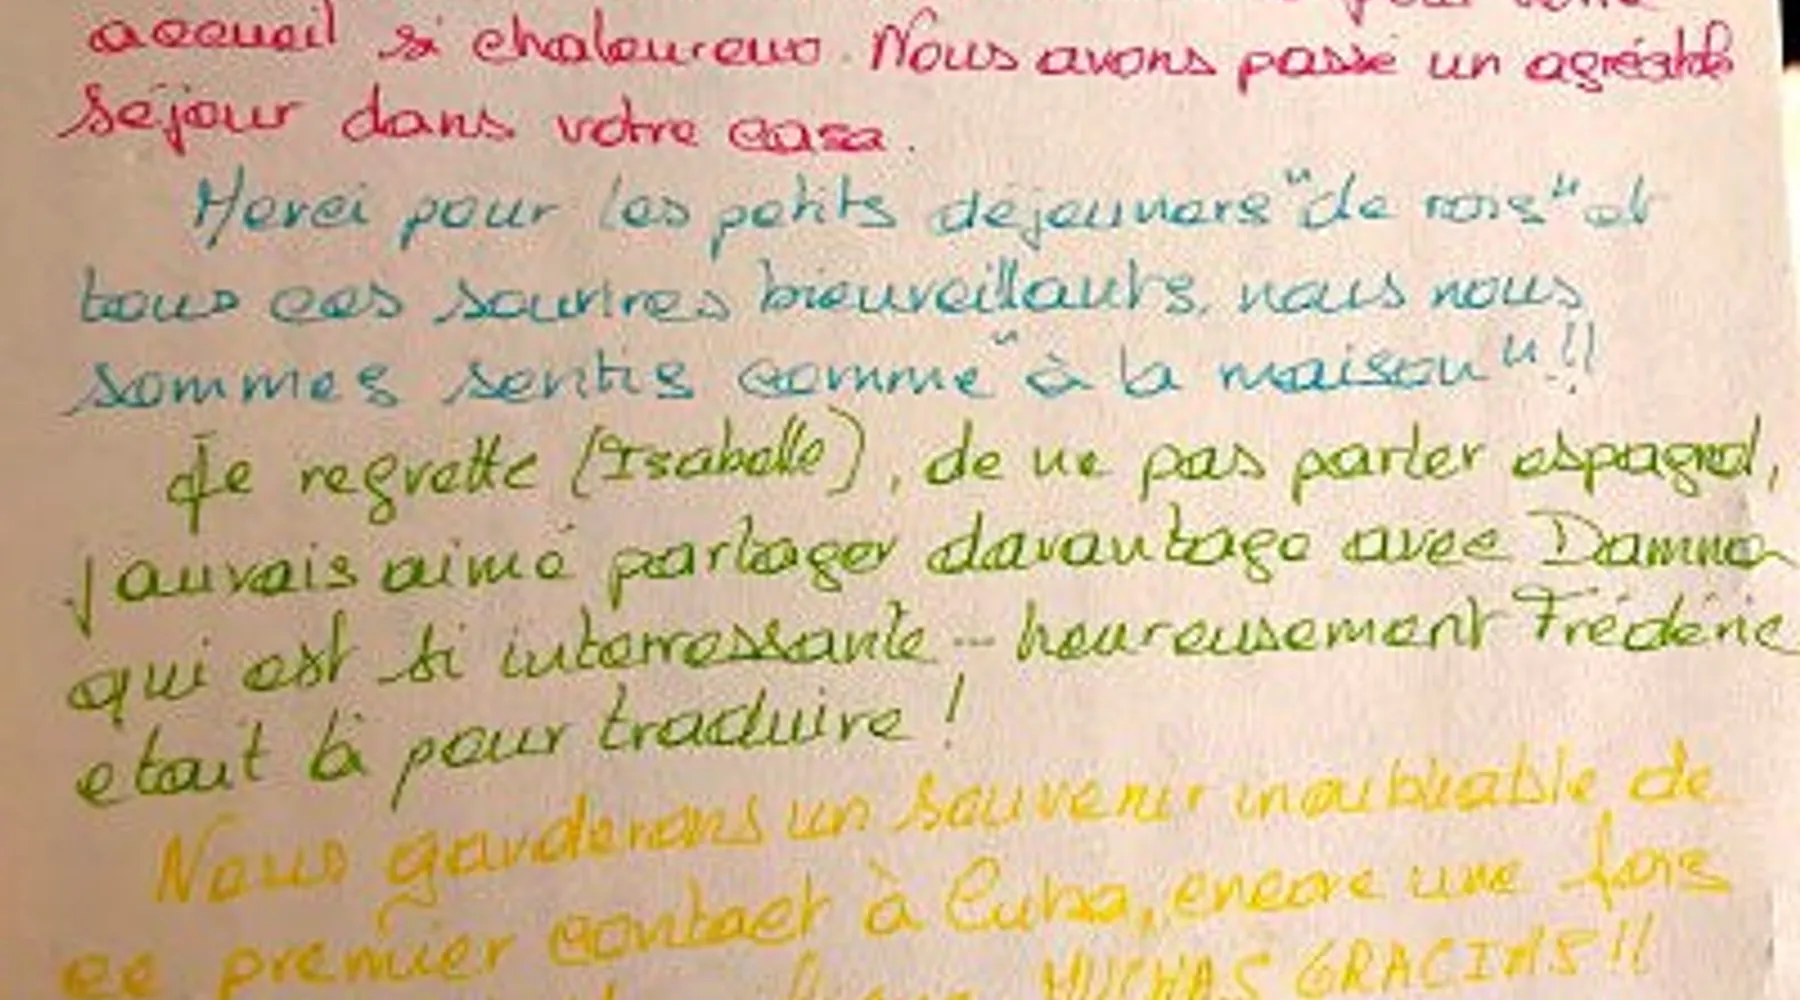 pour votre
accueil si chaleureux. Nous avons passé un agréable
séjour dans votre casa.
Merci pour les petits déjeuners "de rois" et
tous ces sourires bienveillants, nous nous
sommes sentis comme "à la maison"!!
Je regrette (Isabelle), de ne pas parler espagnol,
j'aurais aimé partager davantage avec Damna
qui est si interressante... heureusement Frédéric
etait là pour traduire!
Nous garderons un souvenir inoubliable de
ce premier contact à Cuba, encore une fois
MUCHAS GRACIAS!!